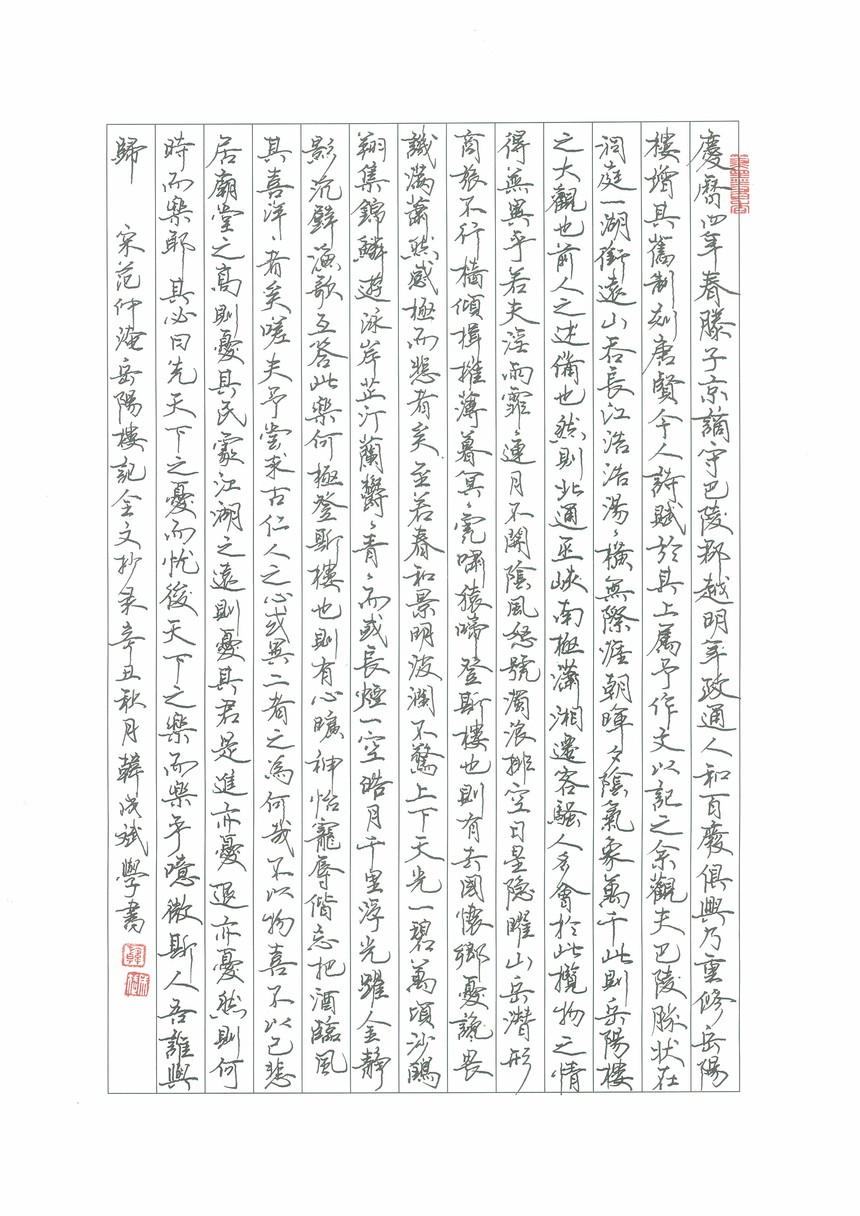 慶曆四年春滕子京謫守巴陵郡越明年政通人和百廢俱興乃重修岳陽
樓增其舊制刻唐賢今人詩賦於其上屬予作文以記之余觀夫巴陵勝狀在
洞庭一湖銜遠山吞長江浩浩湯〻橫無際涯朝暉夕陰氣象萬千此則岳陽樓
之大觀也前人之述備也然則北通巫峽南極瀟湘遷客騷人多會於此攬物之情
得無異乎若夫淫雨霏〻連月不開陰風怒號濁浪排空日星隱曜山岳潛形
商旅不行檣傾楫摧薄暮冥〻虎嘯猿啼登斯樓也則有去國懷鄉憂讒畏
譏滿蕭然感極而悲者矣至若春和景明波瀾不驚上下天光一碧萬頃沙鷗
翔集錦鱗遊泳岸芷汀蘭鬱〻青〻而或長煙一空皓月千里浮光躍金靜
影沉鮮漁歌互答此樂何極登斯樓也則有心曠神怡寵辱偕忘把酒臨風
其喜洋〻者矣嗟夫予嘗求古仁人之心或異二者之為何哉不以物喜不以己悲
居廟堂之高則憂其民處江湖之遠則憂其君是進亦憂退亦憂然則何
時而樂耶其必曰先天下之憂而憂後天下之樂而樂乎噫微斯人吾誰與
歸 宋范仲淹岳陽樓記全文抄录辛丑秋月韓成斌學書